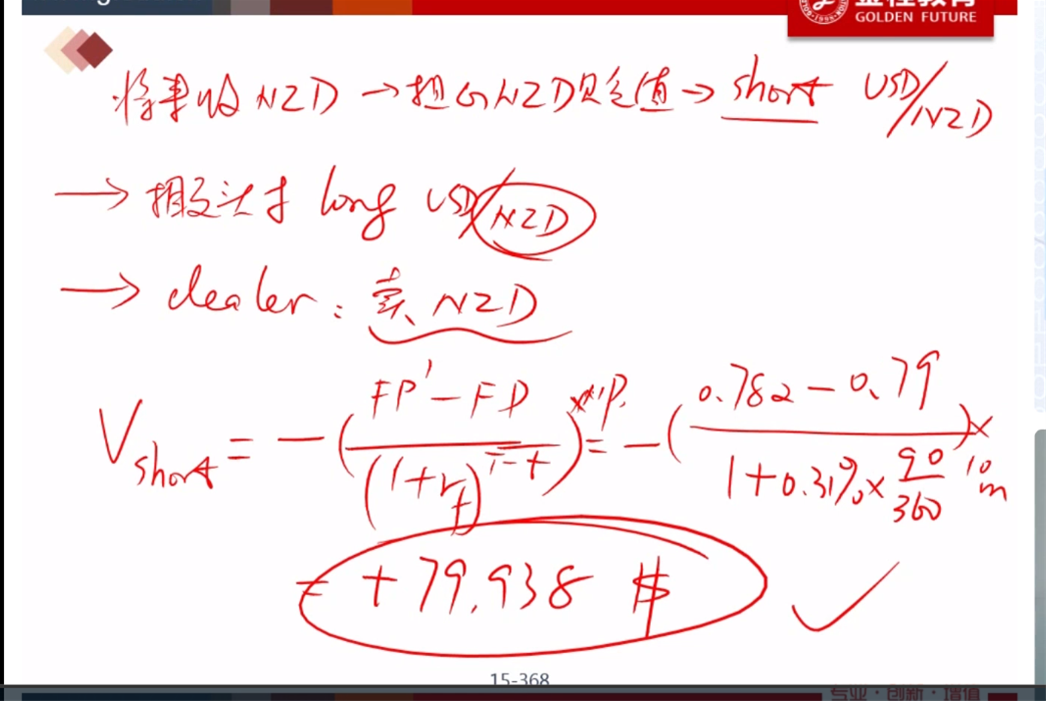 金程教育
GOLDEN FUTURE
将来收 NZD → 担心NZD贬值 → short USD/NZD
→ 相反头寸 long USD/NZD
→ dealer: 卖 NZD
V short = -(FP' - FP / (1+rf)^T-t) × NP. = -(0.782 - 0.79 / 1+0.31%×90/360) × 10m
= +79,938 $
15-368
专业·创新·增值